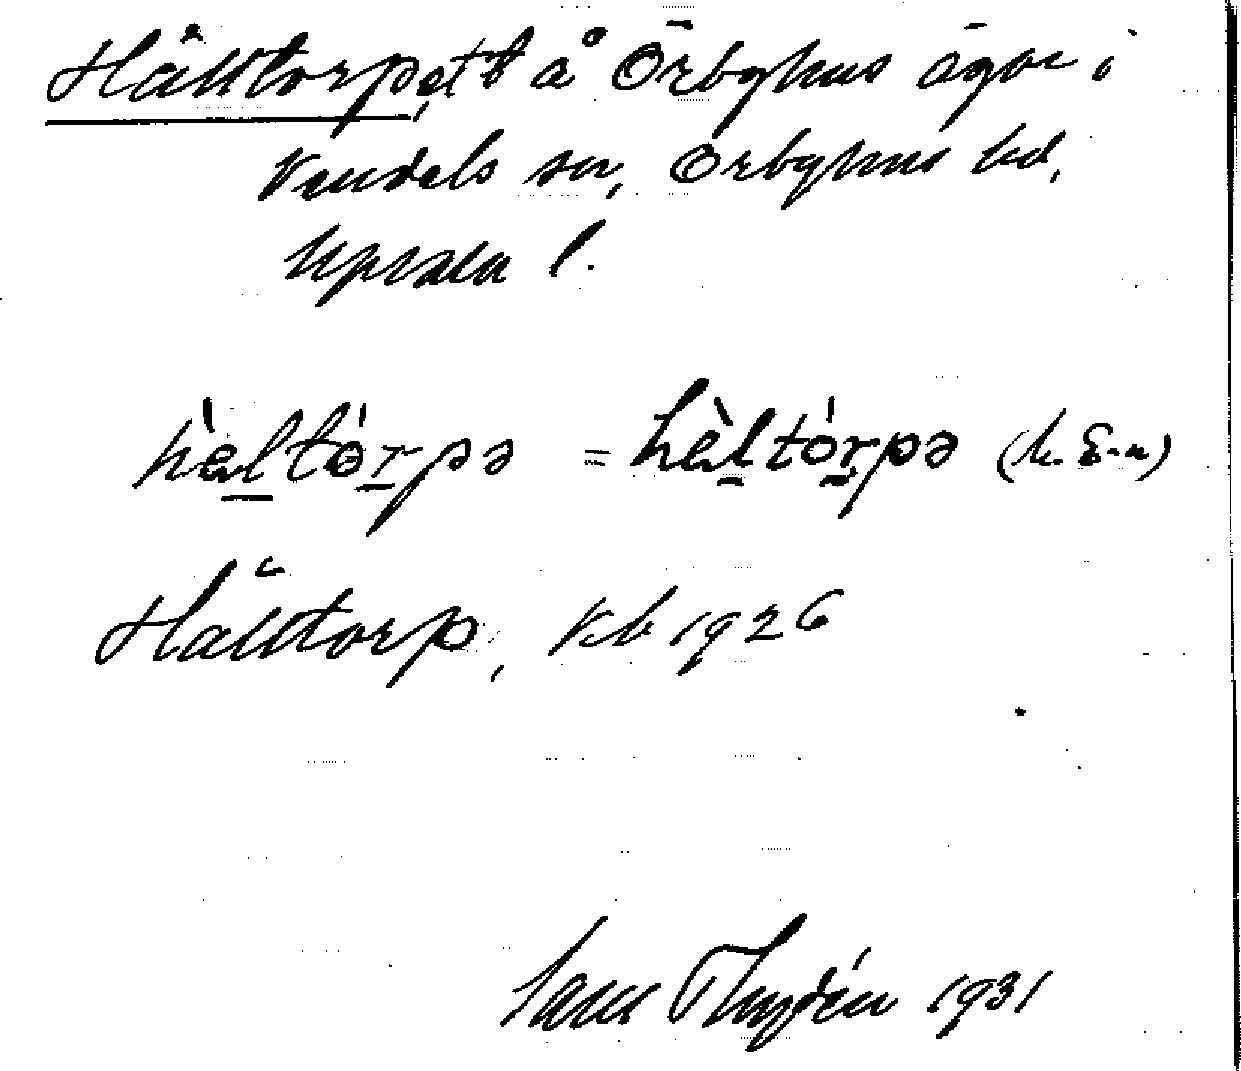 Hålltorpet, t å Örbyhus ägor i
Vendels sn, Örbyhus hd,
Upsala l.
hèltórpə = hèltórpə (k. E-n)
Hålltorp, Kb 1926
Sam Thydén 1931